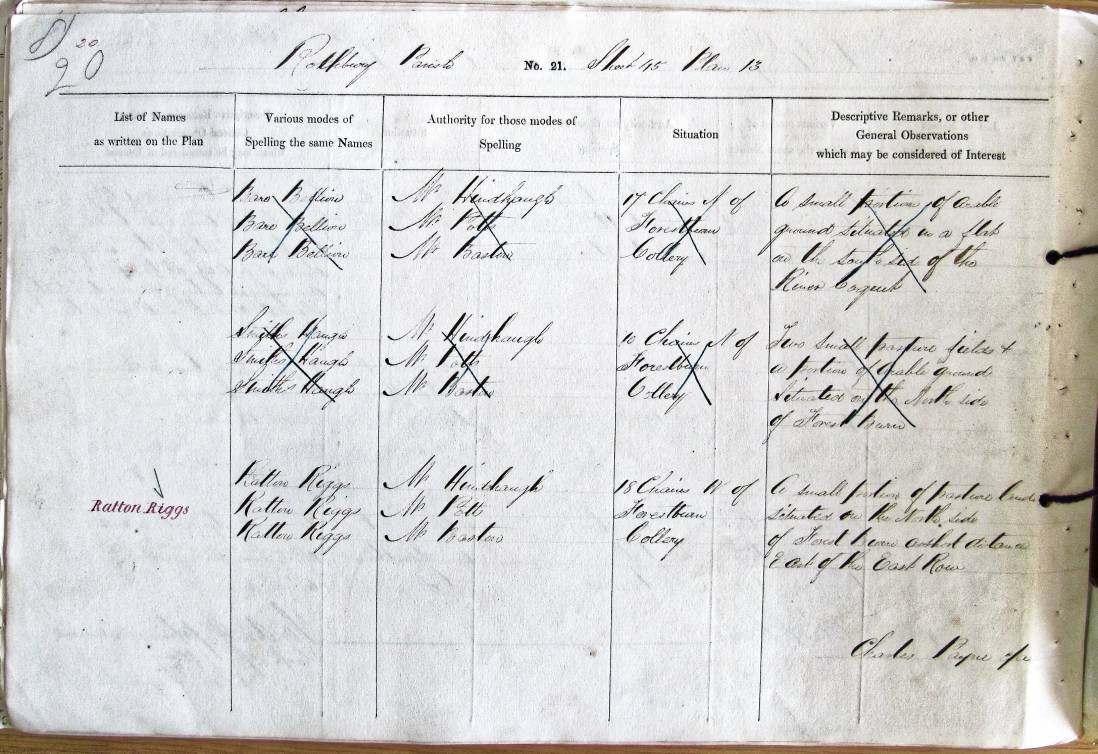 20
20
Rothbury Parish No. 21. Sheet 45 Plan 13
List of Names
as written on the Plan
Various modes of
Spelling the same Names
Authority for those modes of
Spelling
Situation
Descriptive Remarks, or other
General Observations
which may be considered of Interest
Mr Hindhaugh
Mr Potts
Mr Baston
17 Chains N of
Forestburn
Collery
A small portion of arable
ground situated in a flat
on the south side of the
River Coquet
Smiths Haugh
Smiths Haugh
Smiths Haugh
Mr Hindhaugh
Mr Potts
Mr Baston
10 Chains N of
Forestburn
Collery
Two small pasture fields &
a portion of arable ground
Situated on the North side
of Forest Burn
Ratton Riggs
Ratton Riggs
Ratton Riggs
Ratton Riggs
Mr Hindhaugh
Mr Potts
Mr Baston
18 Chains W of
Forestburn
Collery
A small portion of pasture land
situated on the North side
of Forest Burn a short distance
East of the East Row
Charles Payne